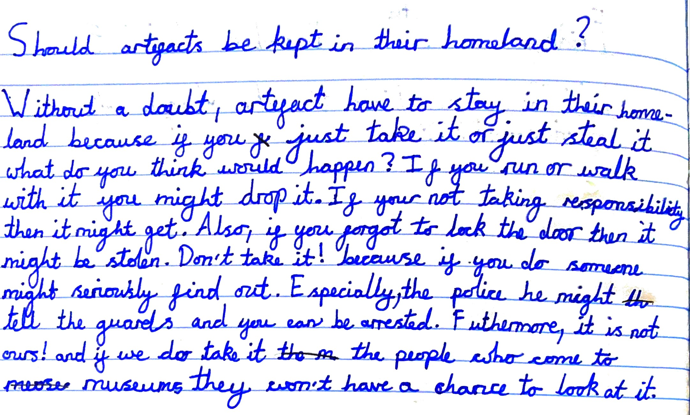 Should artefacts be kept in their homeland?
Without a doubt, artefact have to stay in their home-
land because if you just take it or just steal it
what do you think would happen? If you run or walk
with it you might drop it. If your not taking responsibility
then it might get. Also, if you forgot to lock the door then it
might be stolen. Don't take it! because if you do someone
might seriously find out. Especially, the police he might
tell the guards and you can be arrested. Futhermore, it is not
ours! and if we do take it the people who come to
museums they won't have a chance to look at it.